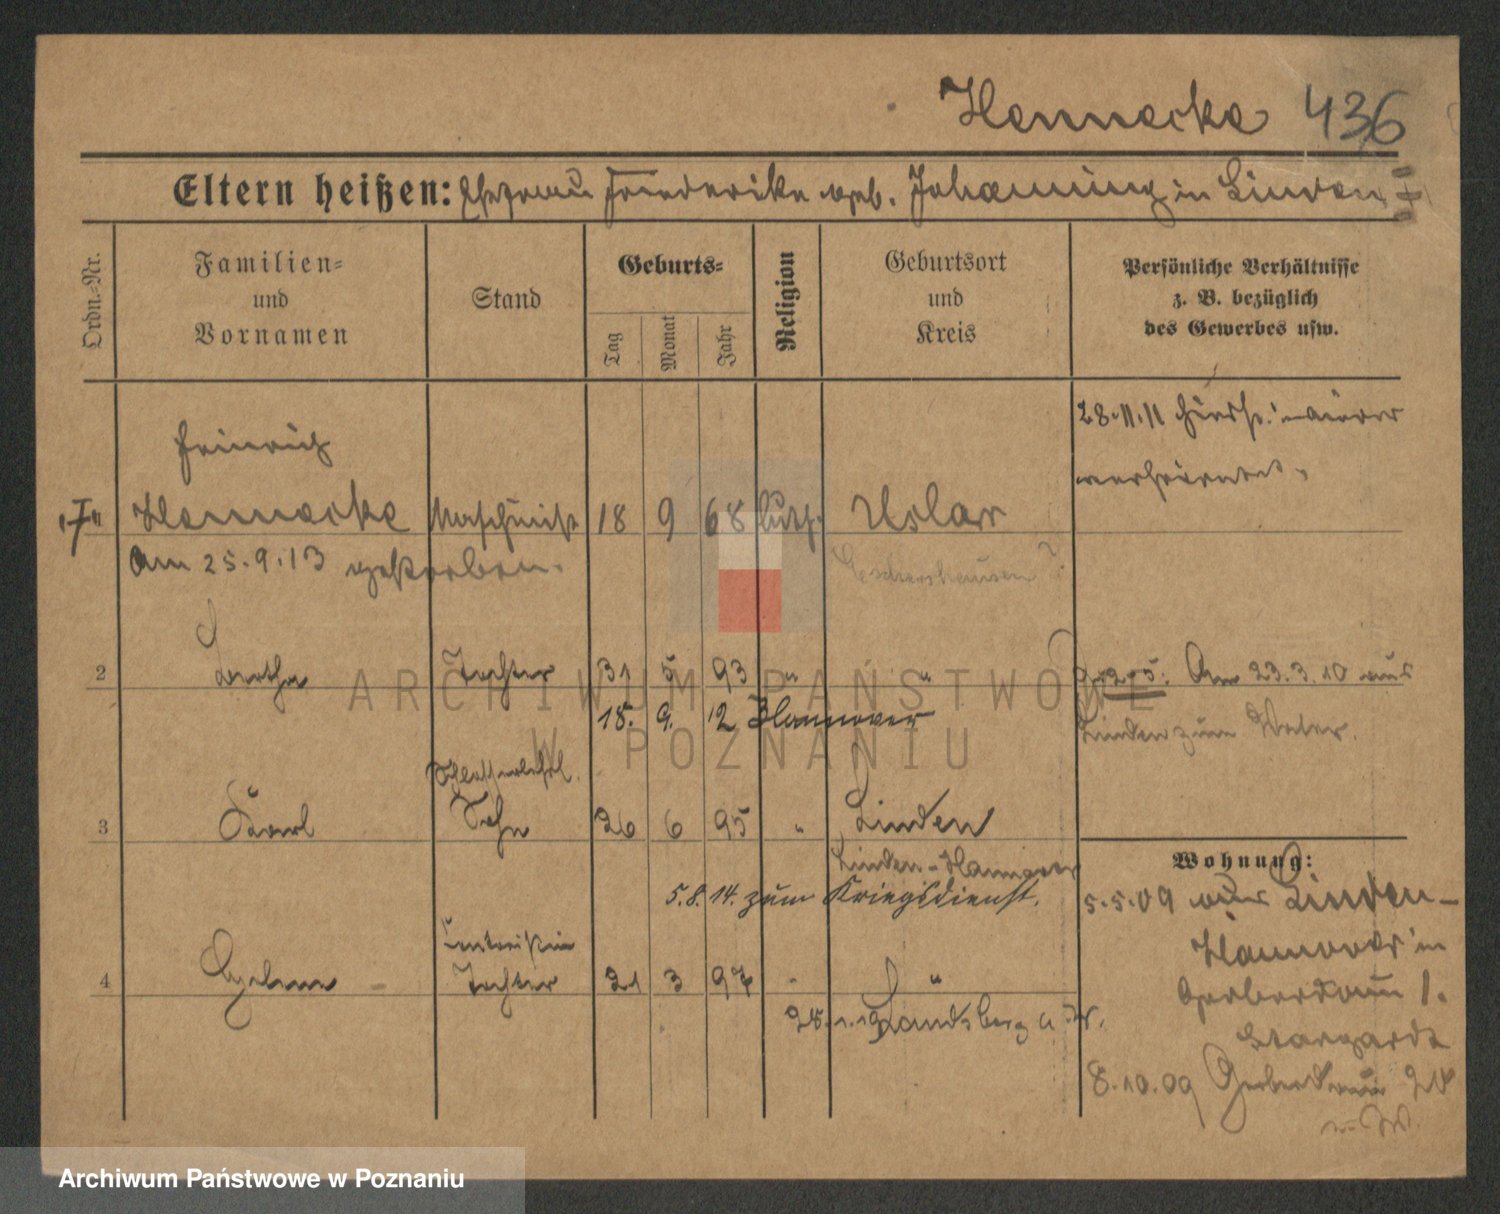 Hennecke 436
Eltern heißen: Ehefrau Friederike geb. Johanning in Linden
Ordn.-Nr.
Familien-
und
Vornamen
Stand
Geburts-
Tag
Monat
Jahr
Religion
Geburtsort
und
Kreis
Persönliche Verhältnisse
z. B. bezüglich
des Gewerbes usw.
28.11.11
Heinrich
Hennecke Maschinist 18 9 68 luth. Uslar
Am 25.9.13 gestorben.
Eschershausen?
2 Bertha Tochter 31 5 93 " " Am 23.3.10 aus
15. 9. 12 Hannover
Linden zum Vater.
Schlosserlehrl.
3 Karl Sohn 26 6 95 " Linden
Linden-Hannover
5.8.14. zum Kriegsdienst.
Wohnung:
5.5.09 aus Linden-
Hannover in
Gerberdamm 1.
Stargardt
8.10.09 Gerberdamm
4 Helene Tochter 21 3 97 " "
Landsberg a W.
ARCHIWUM PAŃSTWOWE
W POZNANIU
Archiwum Państwowe w Poznaniu